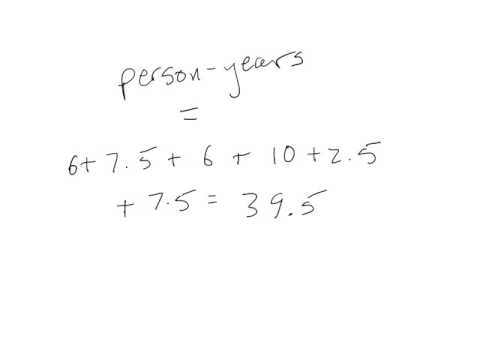 person-years
=
6+ 7.5 + 6 + 10 + 2.5
+ 7.5 = 39.5